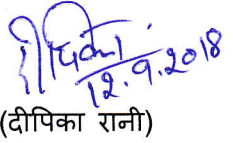 दीपिका
12.9.2018
(दीपिका रानी)